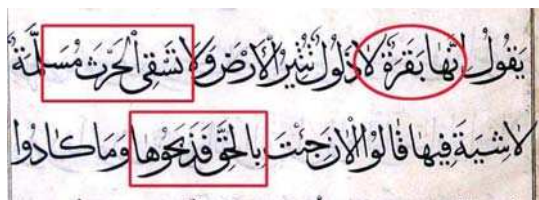 يَقُولُ إِنَّهَا بَقَرَةٌ لَا ذَلُولٌ تُثِيرُ الْأَرْضَ وَلَا تَسْقِي الْحَرْثَ مُسَلَّمَةٌ
لَا شِيَةَ فِيهَا قَالُوا الْآنَ جِئْتَ بِالْحَقِّ فَذَبَحُوهَا وَمَا كَادُوا